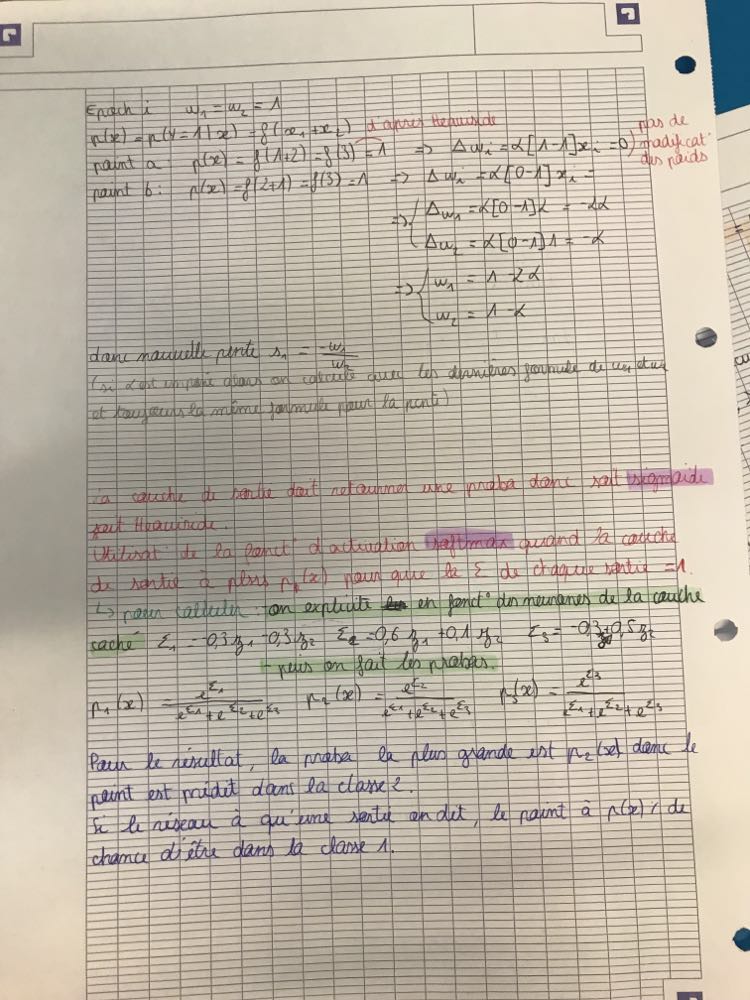 Epoch i w₁ = w₂ = 1
p(x) = p(Y=1|x) = f(x₁+x₂) d'après Heaviside
point a : p(x) = f(1+2) = f(3) = 1 => Δwᵢ = α[1-1]xᵢ = 0) pas de modificat° des poids
point b : p(x) = f(2+1) = f(3) = 1 => Δwᵢ = α[0-1]xᵢ =
=> { Δw₁ = α[0-1]2 = -2α
Δw₂ = α[0-1]1 = -α
=> { w₁ = 1-2α
w₂ = 1-α
donc nouvelle pente s₁ = -w₁/w₂
(si α est imposé alors on calcule avec les dernières formule de w₁ et w₂
et toujours la même formule pour la pente)
La couche de sortie doit retourner une proba donc soit sigmoide
soit Heaviside.
Utilisat° de la fonct° d'activation softmax quand la couche
de sortie à plsrs pₖ(x) pour que la Σ de chaque sortie = 1.
↳ pour calculer : on explicite en fonct° des neurones de la couche
caché Σ₁ = -0,3 z₁ -0,3 z₂ Σ₂ = 0,6 z₁ + 0,1 z₂ Σ₃ = -0,3 + 0,5 z₂
- puis on fait les probas.
p₁(x) = e^Σ₁/(e^Σ₁+e^Σ₂+e^Σ₃) p₂(x) = e^Σ₂/(e^Σ₁+e^Σ₂+e^Σ₃) p₃(x) = e^Σ₃/(e^Σ₁+e^Σ₂+e^Σ₃)
Pour le résultat, la proba la plus grande est p₂(x) donc le
point est prédit dans la classe 2.
Si le réseau à qu'une sortie on dit, le point à p(x)% de
chance d'être dans la classe 1.